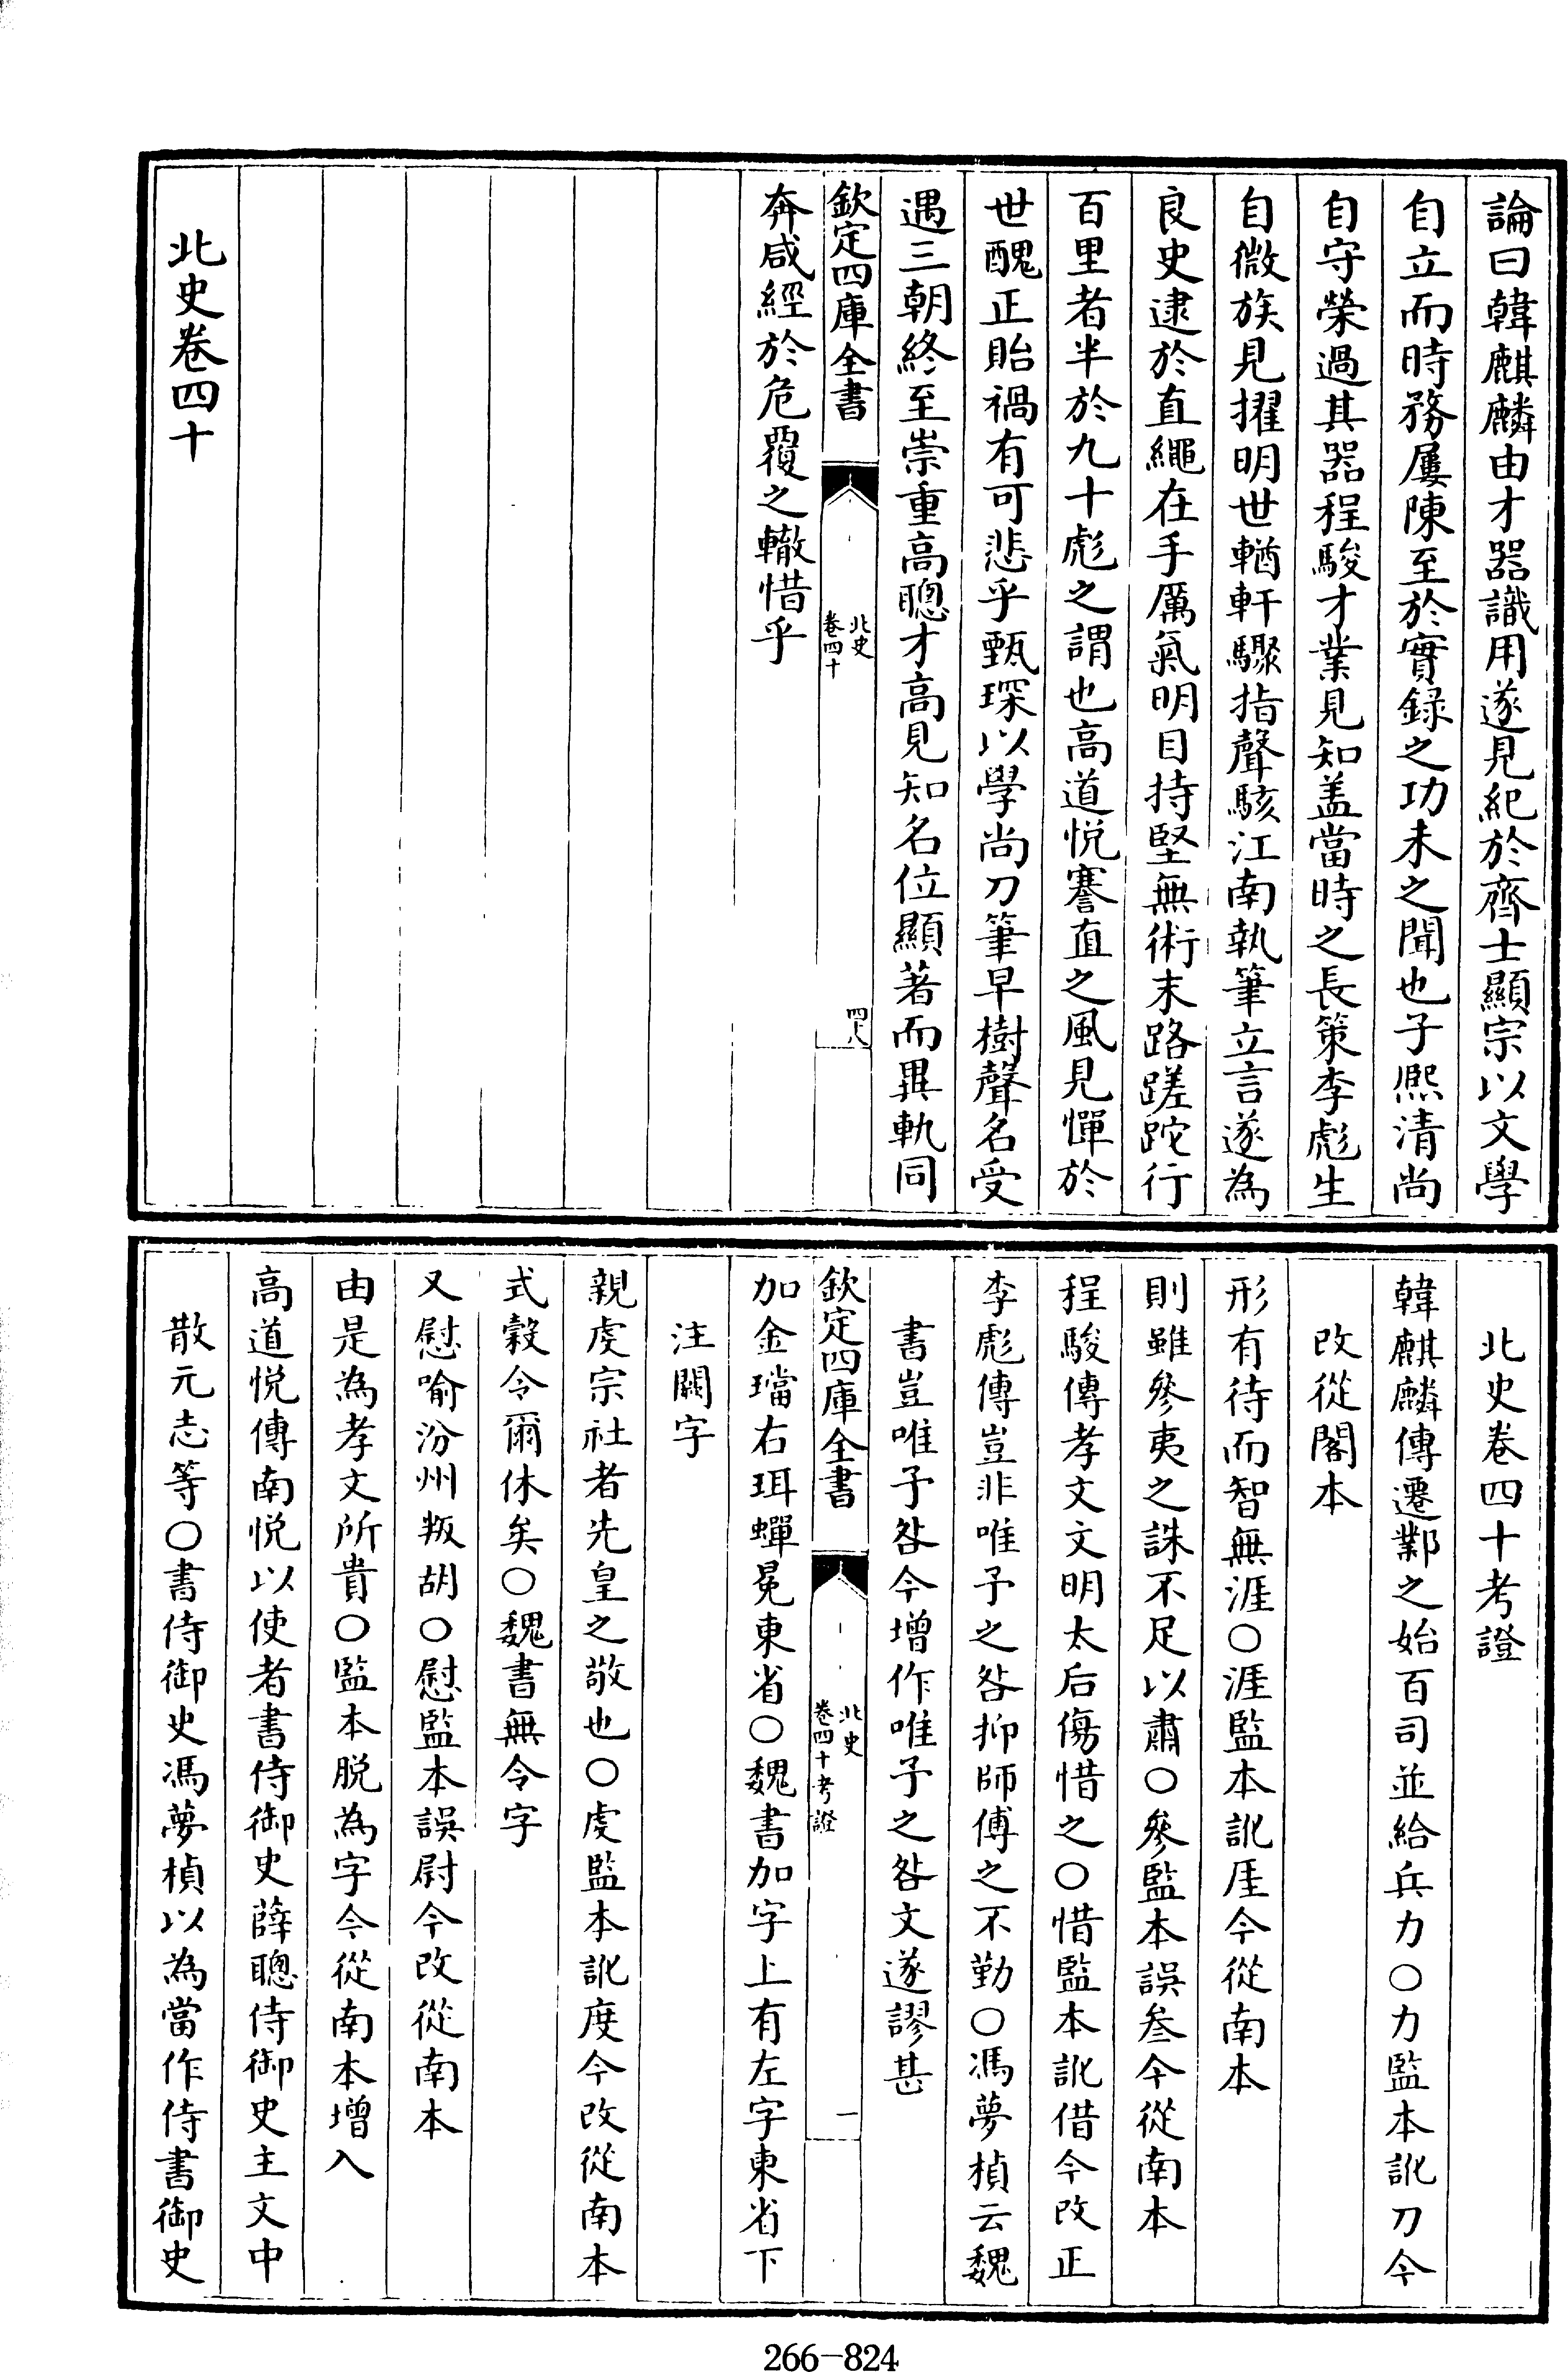 論曰韓麒麟由才器識用遂見紀於齊士顯宗以文學
自立而時務屢陳至於實錄之功未之聞也子熙清尚
自守榮過其器程駿才業見知盖當時之長策李彪生
自微族見擢明世輶軒驟指聲駭江南執筆立言遂為
良史逮於直繩在手厲氣明目持堅無術末路蹉跎行
百里者半於九十彪之謂也高道悅謇直之風見憚於
世醜正貽禍有可悲乎甄琛以學尚刀筆早樹聲名受
遇三朝終至崇重高聰才高見知名位顯著而異軌同
欽定四庫全書
北史
卷四十
四八
奔咸經於危覆之轍惜乎
北史卷四十
北史卷四十考證
韓麒麟傳遷鄴之始百司並給兵力○力監本訛刀今
改從閣本
形有待而智無涯○涯監本訛厓今從南本
則雖參夷之誅不足以肅○參監本誤叁今從南本
程駿傳孝文文明太后傷惜之○惜監本訛借今改正
李彪傳豈非唯予之咎抑師傅之不勤○馮夢楨云魏
書豈唯予咎今增作唯予之咎文遂謬甚
欽定四庫全書
北史
卷四十考證
一
加金璫右珥蟬冕東省○魏書加字上有左字東省下
注闕字
親虔宗社者先皇之敬也○虔監本訛度今改從南本
式穀令爾休矣○魏書無令字
又慰喻汾州叛胡○慰監本誤尉今改從南本
由是為孝文所貴○監本脫為字今從南本增入
高道悅傳南悅以使者書侍御史薛聰侍御史主文中
散元志等○書侍御史馮夢楨以為當作侍書御史
266-824